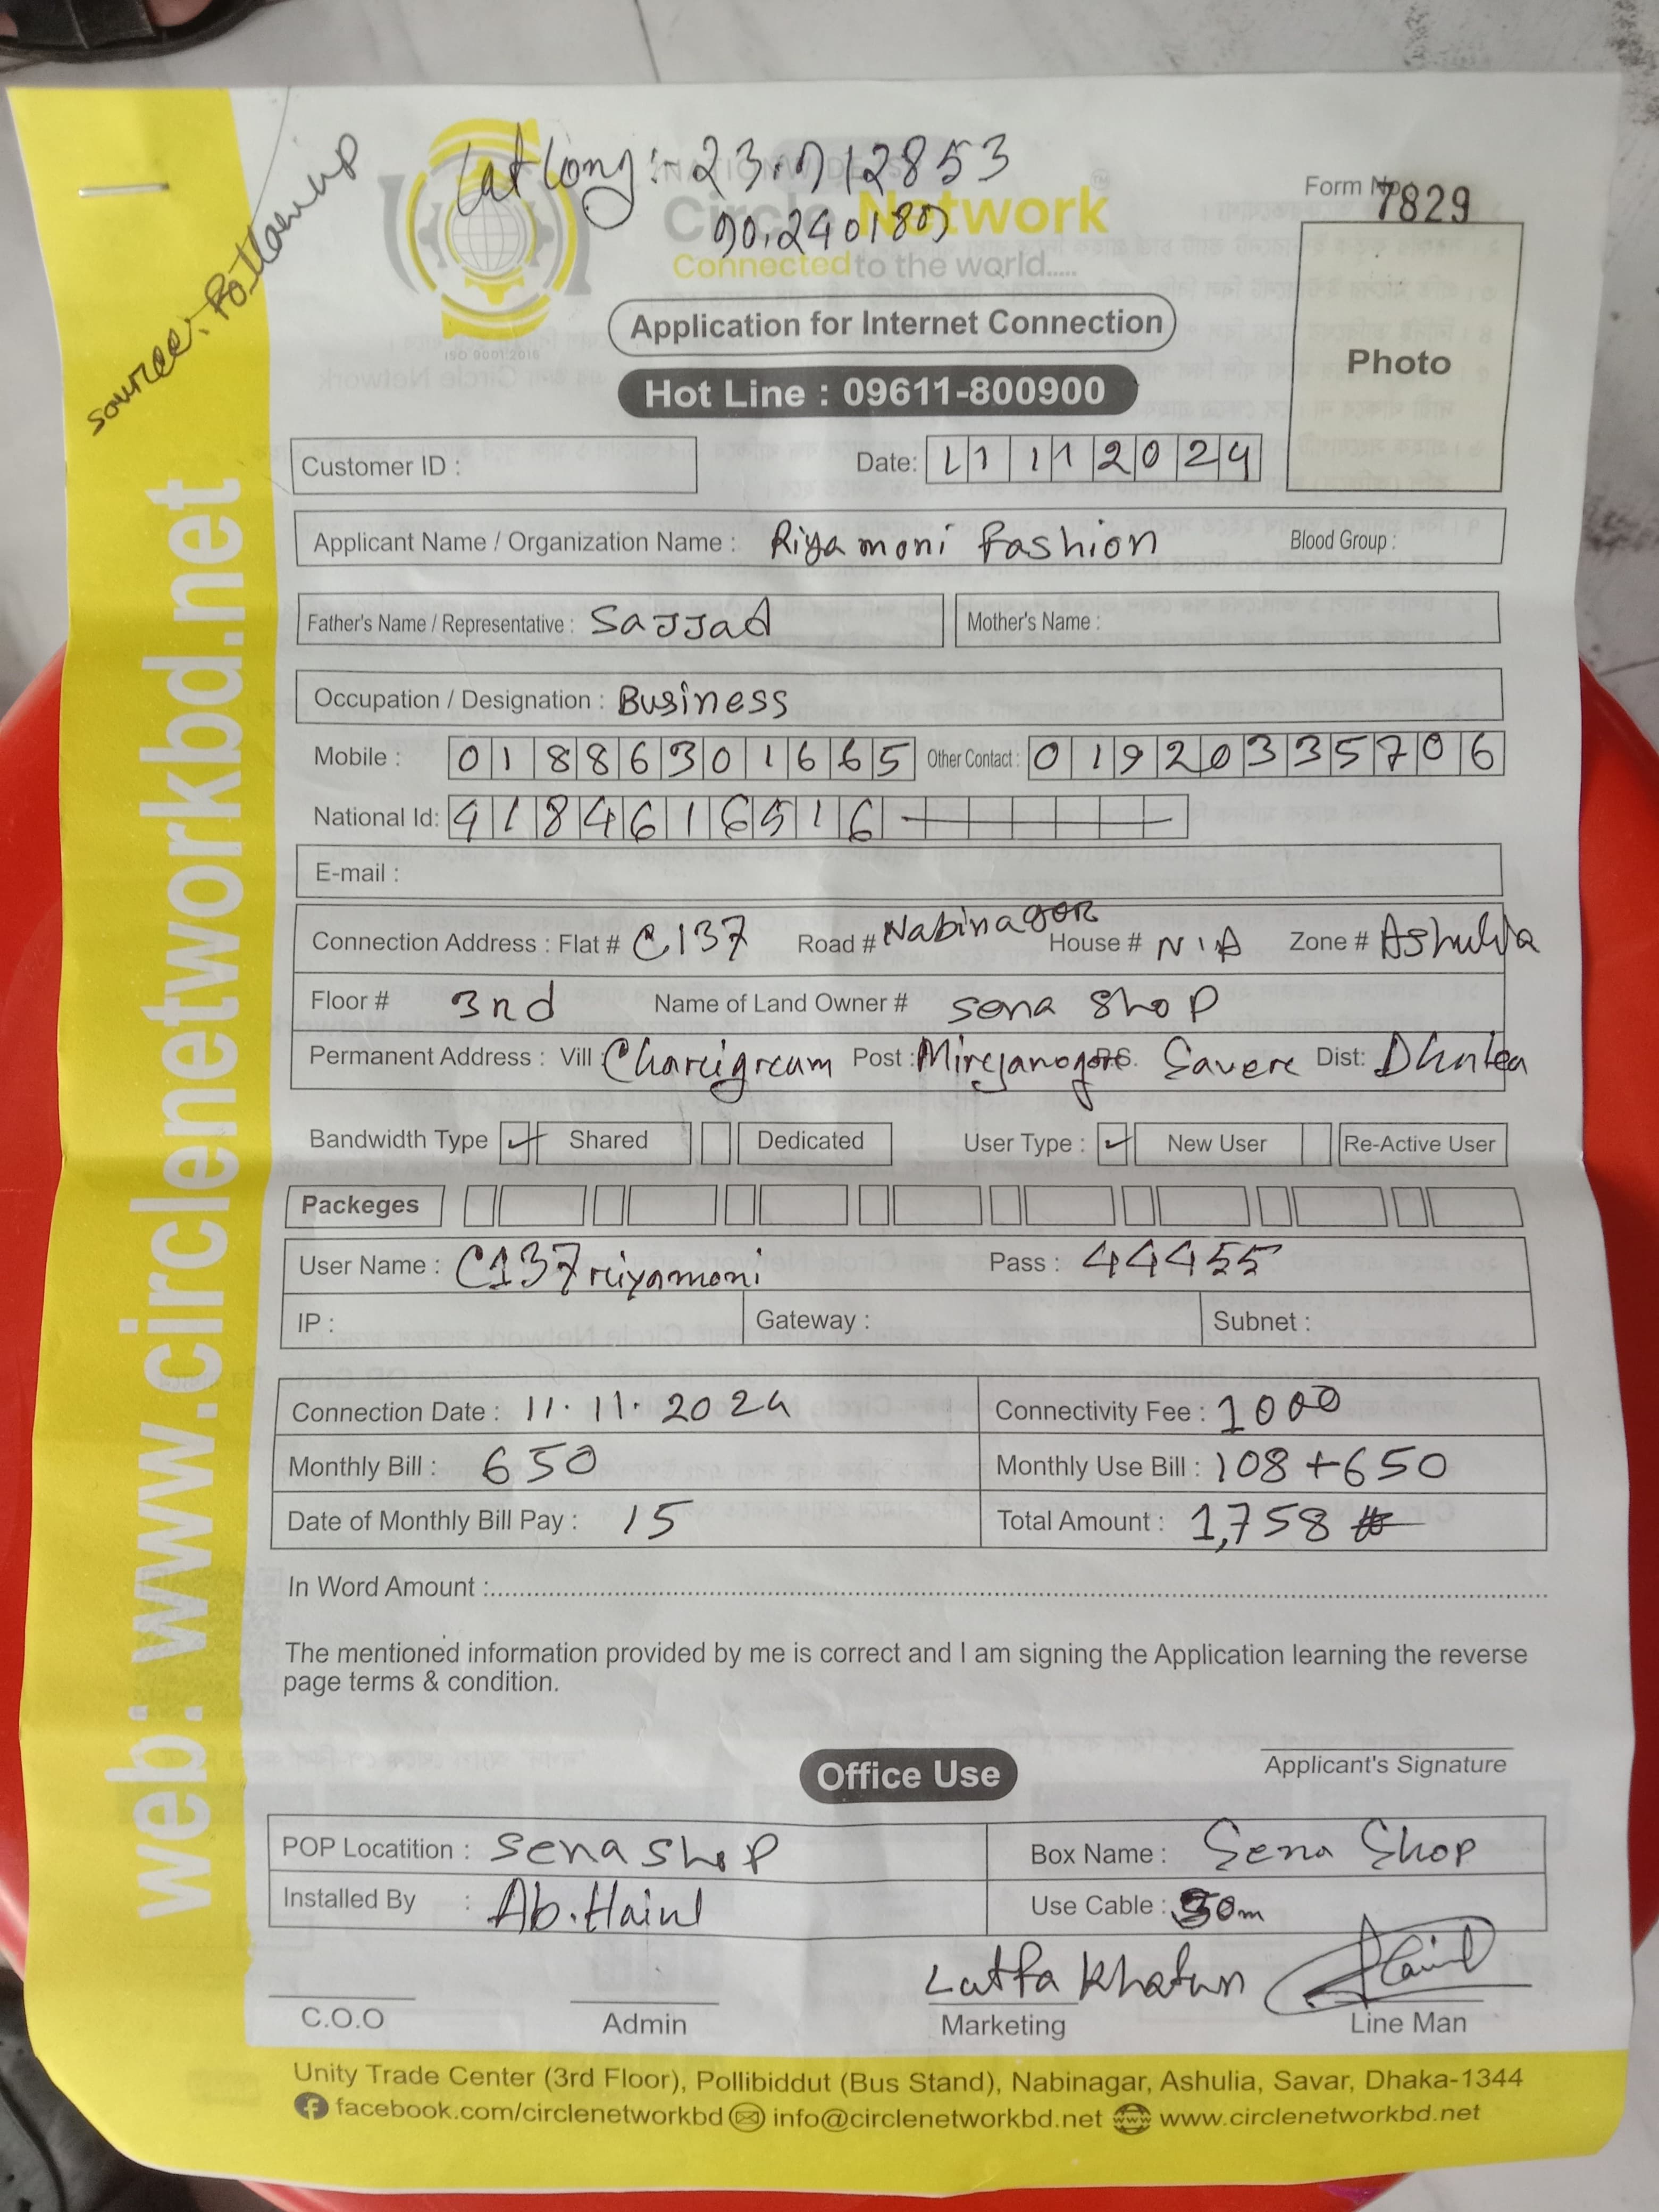 source: Pollowup
Lat long:- 23.912853
90.240189
NATIONWIDE IS
Circle Network
Connected to the world.....
ISO 9001:2015
Form No. 7829
Photo
Application for Internet Connection
Hot Line : 09611-800900
Customer ID :
Date: 11 11 2024
Applicant Name / Organization Name : Riya moni Fashion Blood Group :
Father's Name / Representative : Sajjad Mother's Name :
Occupation / Designation : Business
Mobile : 01886301665 Other Contact : 01920335706
National Id: 4184616516
E-mail :
Connection Address : Flat # C137 Road # Nabinagor House # N/A Zone # Ashulia
Floor # 3nd Name of Land Owner # Sena Shop
Permanent Address : Vill : Charigram Post : Mirzanogor P.S. Savar Dist: Dhaka
Bandwidth Type ✓ Shared Dedicated User Type : ✓ New User Re-Active User
Packeges
User Name : C137riyamoni Pass : 44455
IP : Gateway : Subnet :
Connection Date : 11.11.2024 Connectivity Fee : 1000
Monthly Bill : 650 Monthly Use Bill : 108+650
Date of Monthly Bill Pay : 15 Total Amount : 1,758
In Word Amount :
The mentioned information provided by me is correct and I am signing the Application learning the reverse
page terms & condition.
Applicant's Signature
Office Use
POP Locatition : Sena Shop Box Name : Sena Shop
Installed By : Ab. Use Cable : 50m
Latfa Khatun
C.O.O Admin Marketing Line Man
Unity Trade Center (3rd Floor), Pollibiddut (Bus Stand), Nabinagar, Ashulia, Savar, Dhaka-1344
facebook.com/circlenetworkbd info@circlenetworkbd.net www.circlenetworkbd.net
web: www.circlenetworkbd.net